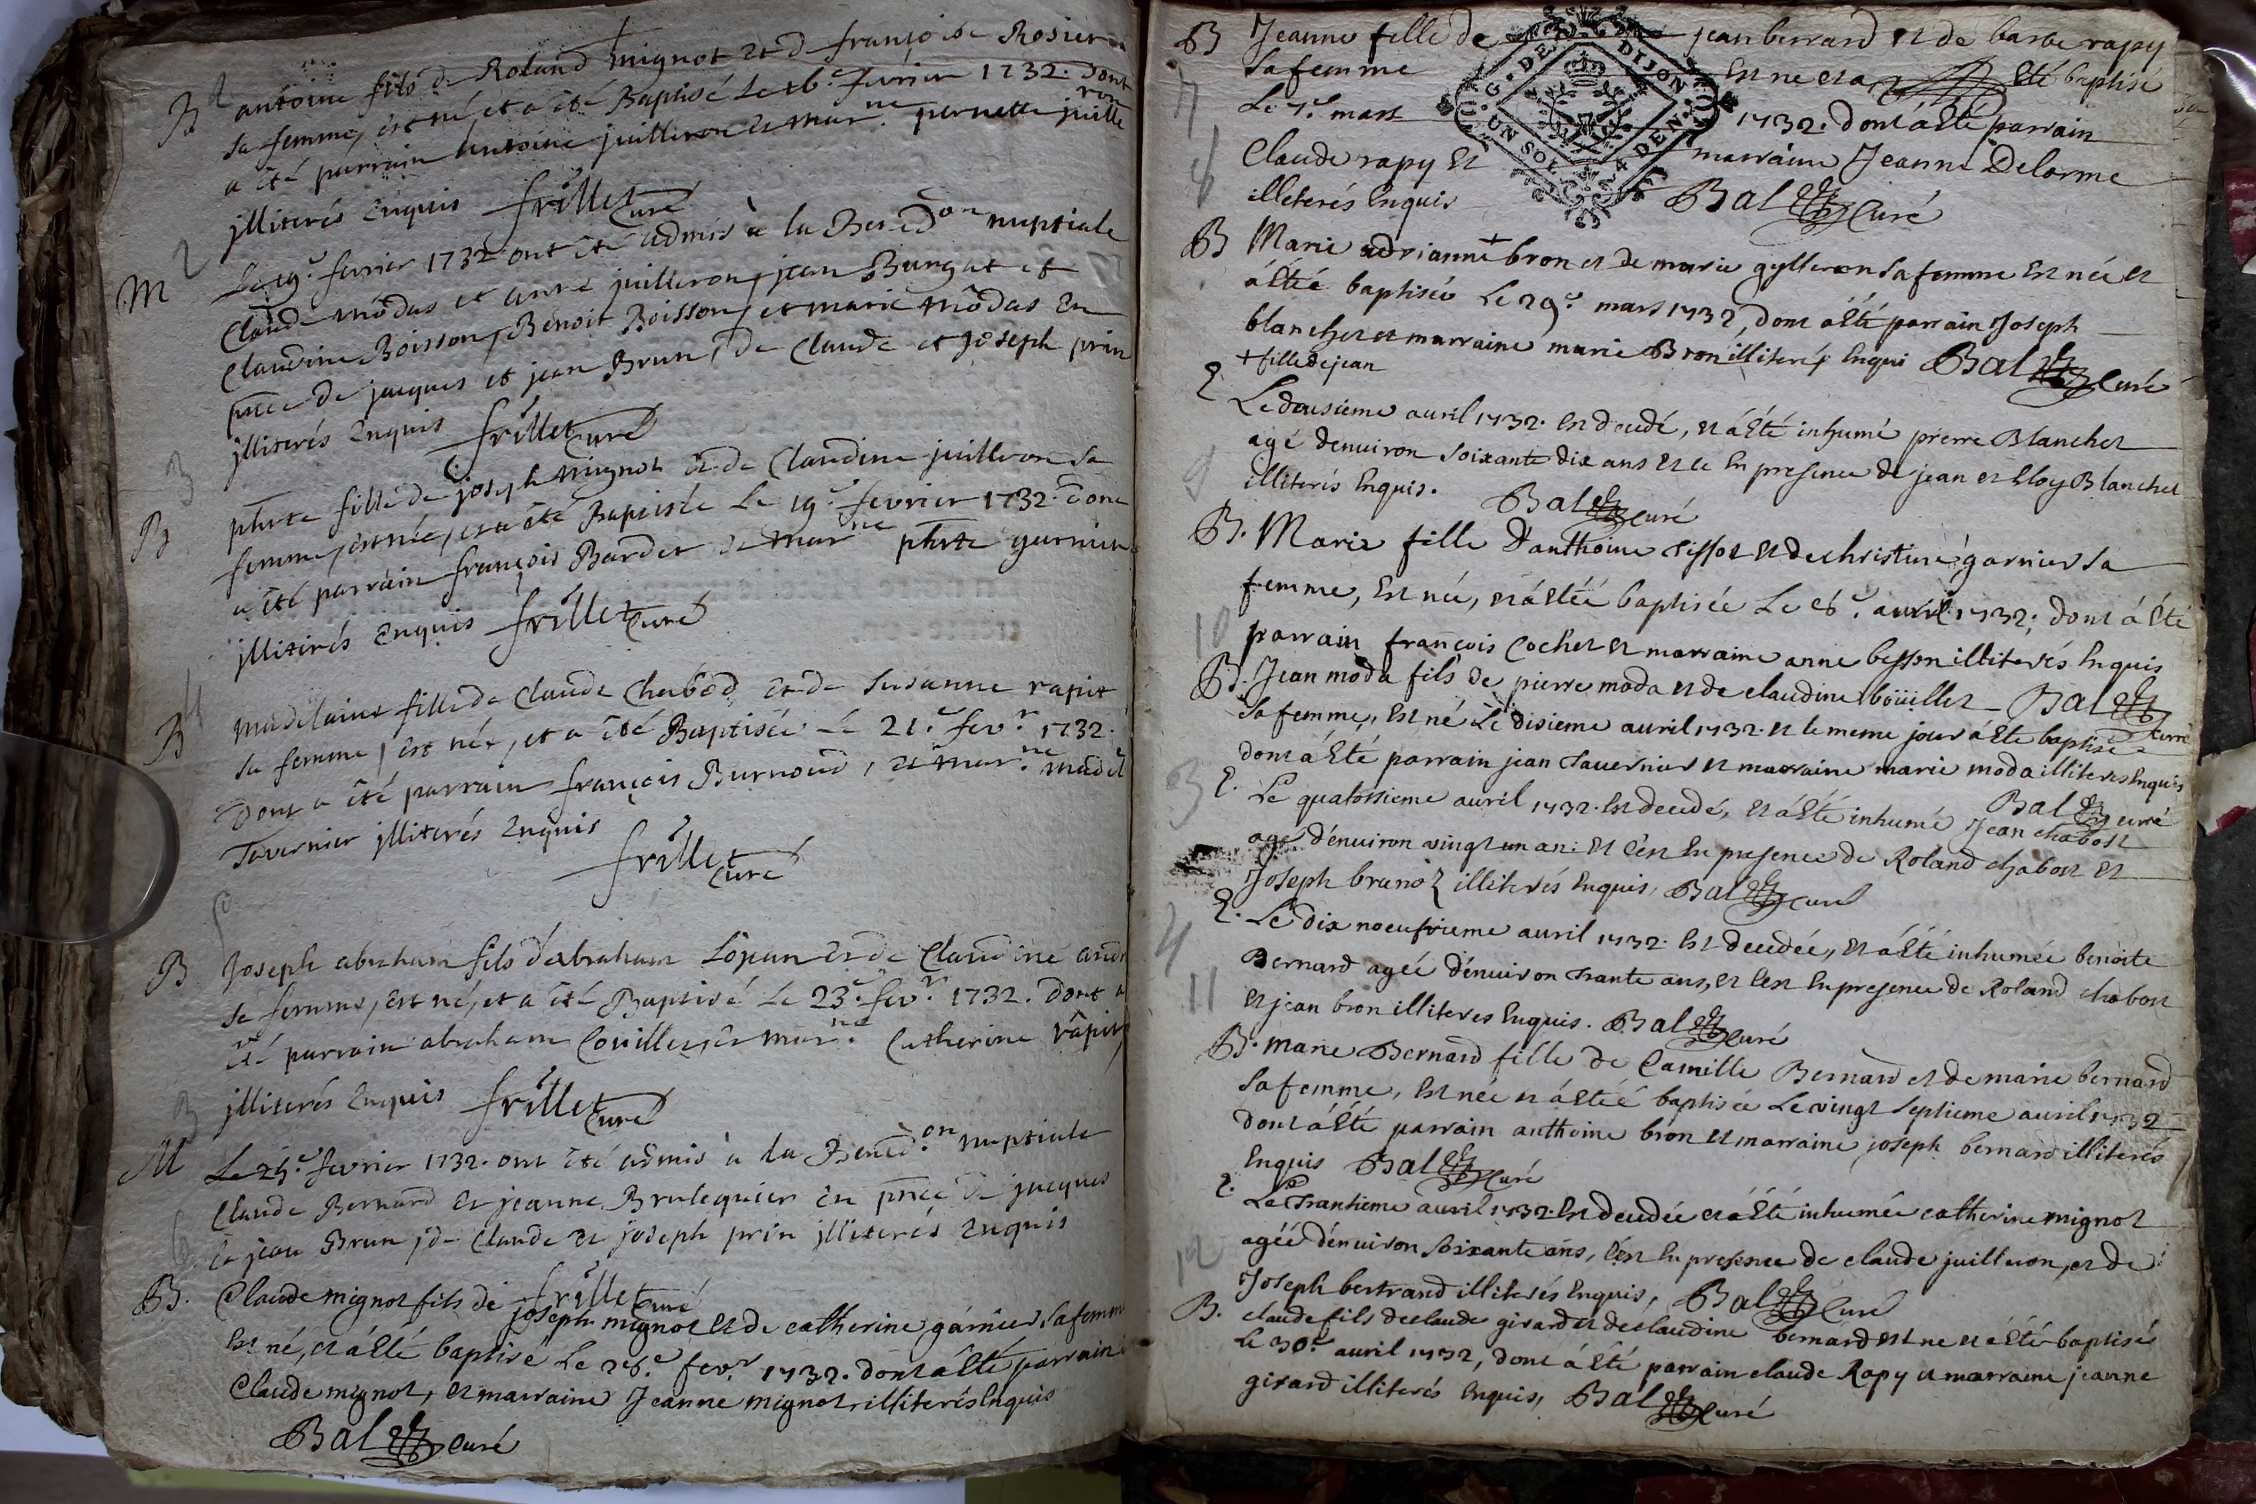 B 1 antoine fils de Roland mignot et d françoise Rosier
sa femme, est né et a été Baptisé Le 16.e fevrier 1732. Dont
a été parrain Antoine juilleron et mar.ne pernette juille
ron
jlliterés Enquis frillet Curé
M 2 Le 19.e fevrier 1732 ont été admis à la Bened.on nuptiale
Claude môdas et anne juilleron, jean Bungat et
Claudine Boisson, Benoit Boisson, et marie môdas En
pñce de jacques et jean Brun, de Claude et Joseph prin
jlliterés Enquis frillet Curé
3
B phrte fille de joseph mignot et de Claudine juilleron sa
femme, est née, et a été Baptisée Le 19.e fevrier 1732. dont
a été parrain françois Bardet et mar.ne phrte garnier
jlliterés Enquis frillet Curé
4
B madelaine fille de Claude Chabod et de Susanne rapit
sa femme, est née, et a été Baptisée Le 21.e fev.r 1732.
Dont a été parrain françois Burnoud, et mar.ne madel
Tavernier jlliterés Enquis
frillet Curé
5
B Joseph abraham fils d'abraham Lôpan et de Claudine
sa femme, est né, et a été Baptisé Le 23.e fev.r 1732. Dont a
été parrain abraham Covillet, et mar.ne Catherine râpit,
jlliterés Enquis frillet Curé
3
M Le 25.e fevrier 1732. ont été admis à la Bened.on nuptiale
Claude Bernard et jeanne Brulequier En pñce de jacques
et jean Brun, de Claude et joseph prin jlliterés Enquis
frillet Curé
6
B. Claude mignot fils de joseph mignot et de catherine garnier sa femme
Est né, et a Eté baptisé Le 26.e fev.r 1732. dont a Eté parrain
Claude mignot, et marraine Jeanne mignot illiterés Enquis
Bal curé
B Jeanne fille de jean berrard et de barbe rapy
sa femme Est ne et a Eté baptisé
7 Le 7.e mars 1732. dont á Eté parrain
Claude rapy Et marraine Jeanne Delorme
illeterés Enquis Bal Curé
G. DE DIJON
UN SOL 4 DEN.
8
B Marie adrianne + bron et de marie gylleron sa femme Est née et
á Etée baptisée Le 29.e mars 1732, dont á Eté parrain Joseph
blanchet et marraine marie Bron illiterés Enqui Bal Curé
+ fille de jean
E Le deusieme auril 1732. Est decedé, et á Eté inhumé pierre Blanchet
agé denuiron soixante dix ans et ce En presence de jean et Eloy Blanchet
illiterés Enquis. Bal curé
9
B. Marie fille D'anthoine Tissot et de christine garnier sa
femme, Est née, et á Etéé baptisée Le 6.e auril 1732; dont á Eté
parrain françois Cochet et marraine anne besson illiterés Enquis
Bal curé
10
B. Jean moda fils de pierre moda et de claudine boüillet
sa femme, Est né Le disieme auril 1732. et le meme jour á Eté baptisé
dont á Eté parrain jean Tauernier et marraine marie moda illiteres Enquis
Bal curé
3
E. Le quatorsieme auril 1732. Est decedé, et á Eté inhumé Jean chabost
agé d'enuiron vingt un an: et c'est En presence de Roland chabost et
Joseph brunoz illiterés Enquis, Bal curé
4
E. Le dix noeufvieme auril 1732. Est decedée, et á Eté inhumée benoite
Bernard ageé d'enuiron Trante ans, et c'est En presence de Roland chabost
et jean bron illiteres Enquis. Bal Curé
11
B. marie Bernard fille de Camille Bernard et de marie bernard
sa femme, Est née et á Etéé baptisée Le vingt septieme auril 1732
dont á Eté parrain anthoine bron et marraine joseph bernard illiterés
Enquis Bal Curé
E. Le Trantieme auril 1732. Est decedée et á Eté inhumée catherine mignot
ageé d'enuiron soixante ans, c'est En presence de claude juilleron, et de
Joseph bertrand illiterés Enquis, Bal Curé
12
B. claude fils de claude girard et de claudine bernard Est ne et á Eté baptisé
Le 30.e auril 1732, dont á Eté parrain claude Rapy et marraine jeanne
girard illiterés Enquis, Bal Curé